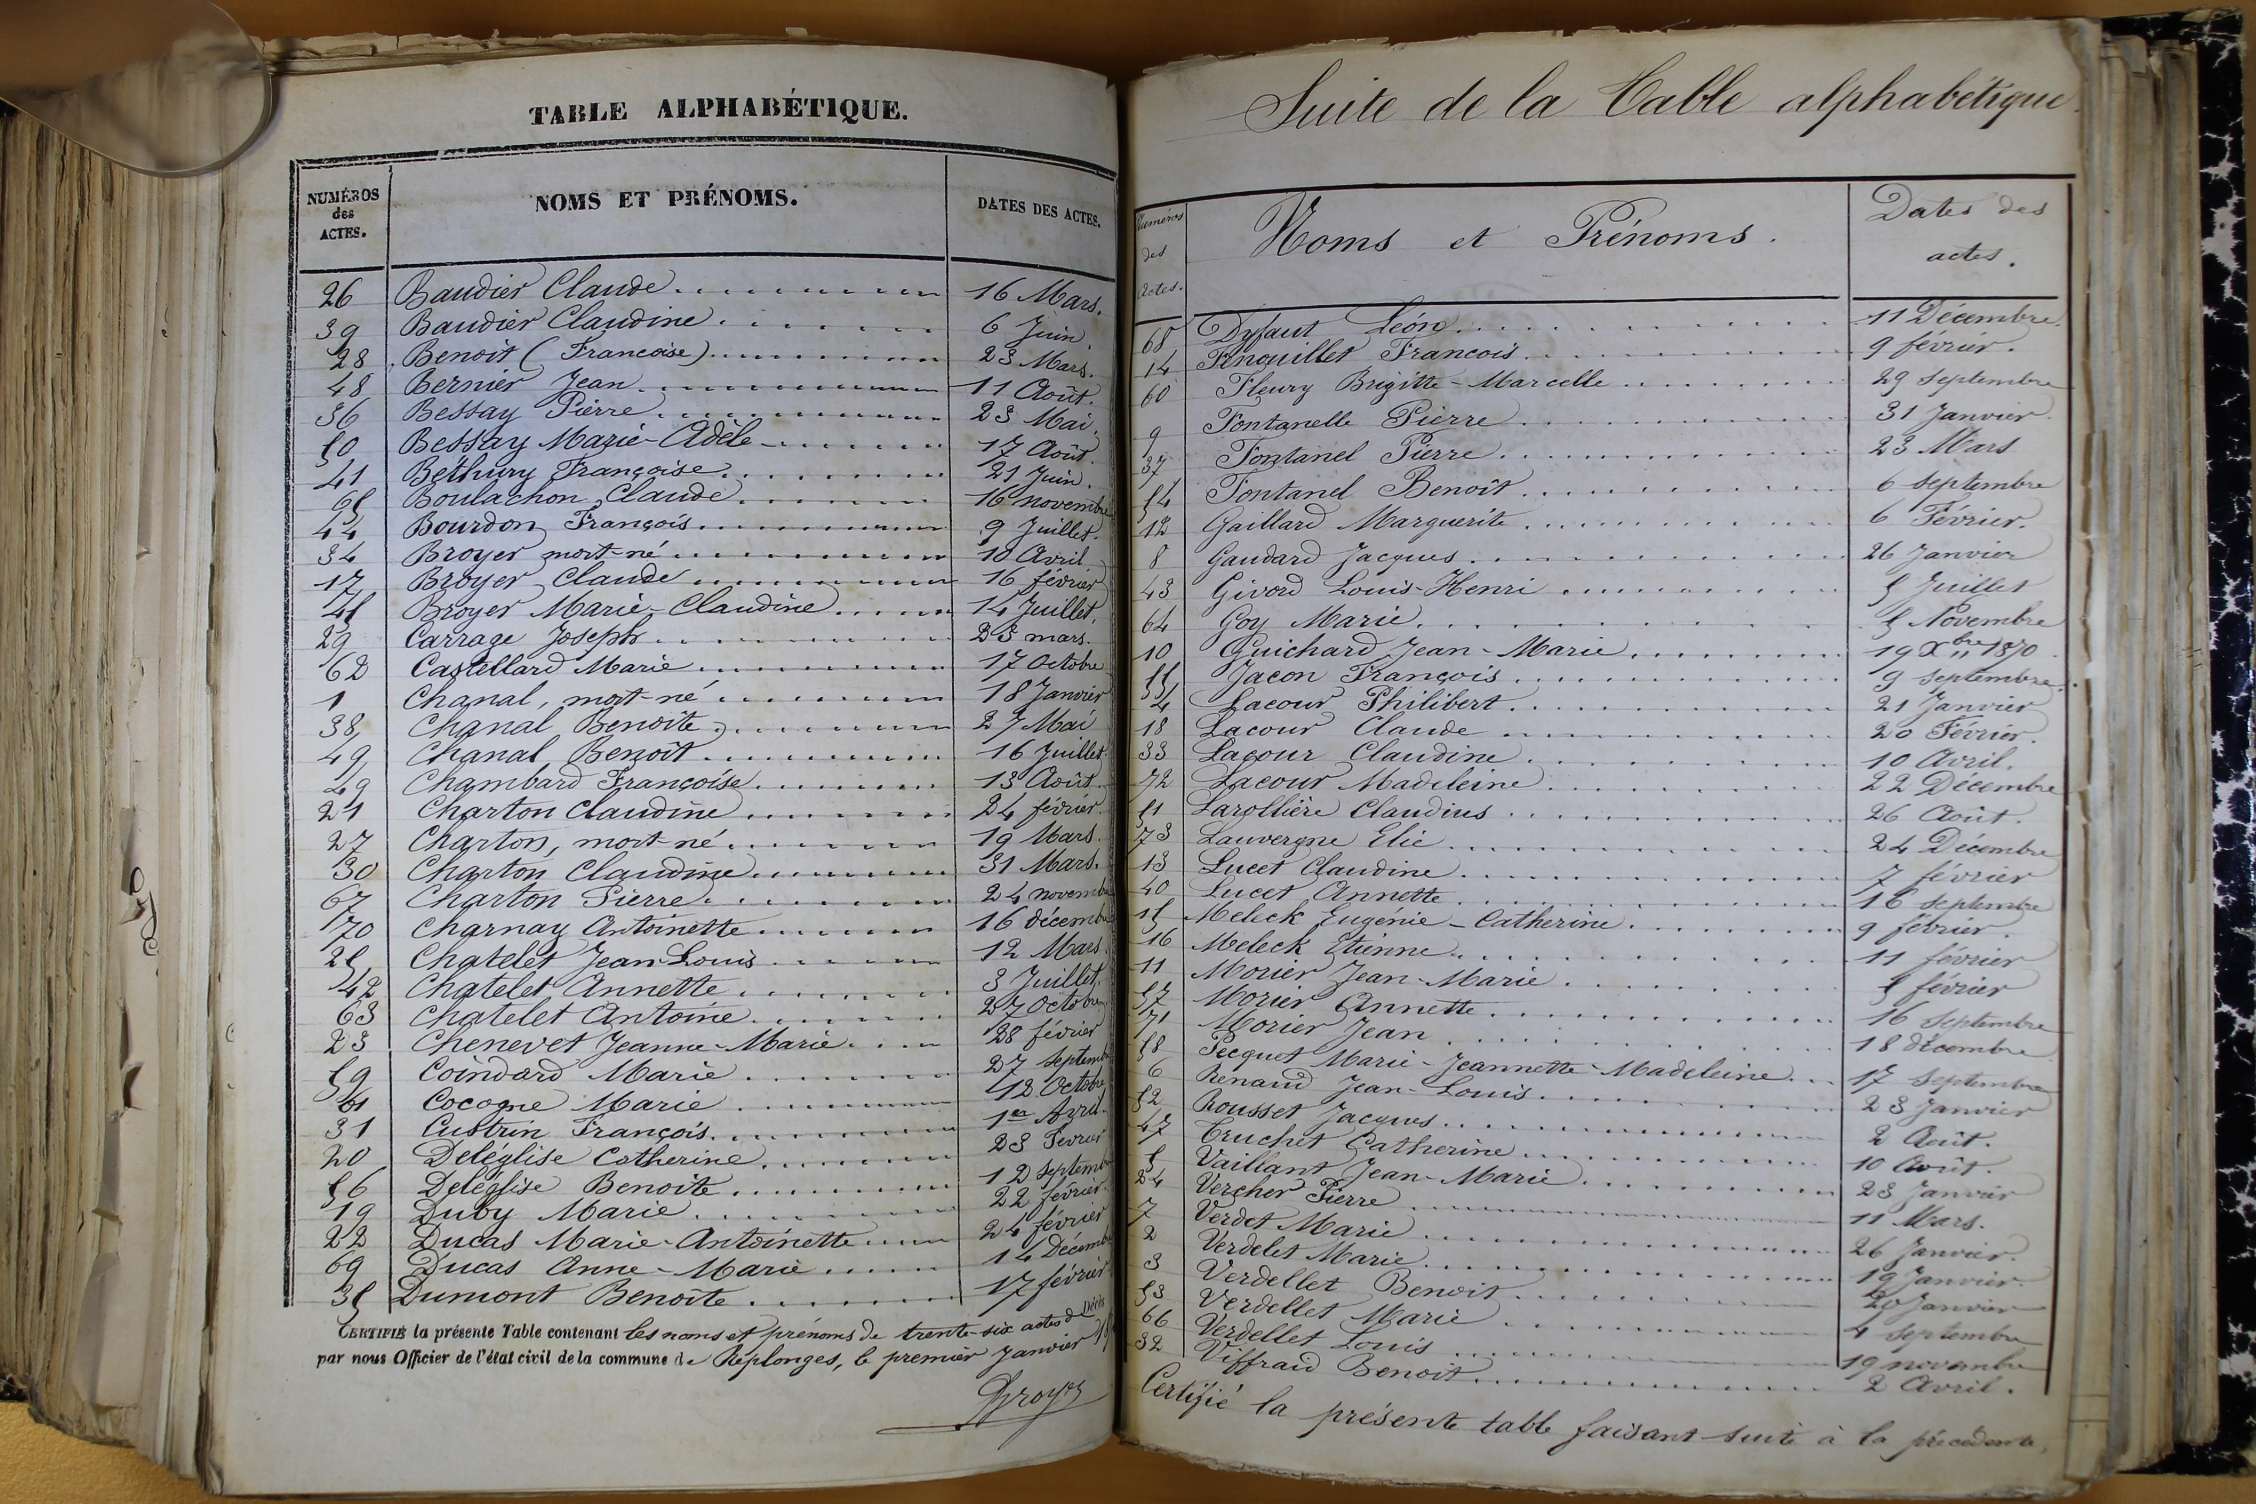 TABLE ALPHABÉTIQUE.
NUMÉROS des ACTES. NOMS ET PRÉNOMS. DATES DES ACTES.
26 Baudier Claude 16 Mars.
39 Baudier Claudine 6 Juin.
28 Benoit (Francoise) 23 Mars.
48 Bernier Jean 11 Août.
36 Bessay Pierre 23 Mai.
50 Bessay Marie-Adèle 17 Août.
41 Béthury Françoise 21 Juin.
65 Boulachon Claude 16 novembre
44 Bourdon François 9 Juillet.
34 Broyer mort-né 10 Avril
17 Broyer Claude 16 février
45 Broyer Marie-Claudine 14 Juillet.
29 Carrage Joseph 23 mars.
62 Castellard Marie 17 Octobre
1 Chanal, mort-né 18 Janvier
38 Chanal Benoîte 27 Mai
49 Chanal Benoît 16 Juillet.
49 Chambard Françoise 13 Août
21 Charton Claudine 24 février.
27 Charton, mort-né 19 Mars.
30 Charton Claudine 31 Mars.
67 Charton Pierre 24 novemb
70 Charnay Antoinette 16 décemb
25 Chatelet Jean-Louis 12 Mars.
42 Chatelet Annette 3 Juillet.
63 Chatelet Antoine 27 Octobre
23 Chenevet Jeanne-Marie 28 février
59 Coindard Marie 27 septemb
61 Cocogne Marie 12 Octobre
31 Custrin François 1er Avril
20 Deléglise Catherine 23 Février
56 Deléglise Benoîte 12 septemb
19 Duby Marie 22 février
22 Ducas Marie-Antoinette 24 février
69 Ducas Anne-Marie 14 Décemb
35 Dumont Benoîte 17 février
CERTIFIÉ la présente Table contenant les noms et prénoms de trente-six actes de Décès
par nous Officier de l'état civil de la commune de Replonges, le premier Janvier
Broyer
Suite de la Table alphabétique.
Numéros des Actes. Noms et Prénoms. Dates des actes.
68 Dufaut Léon 11 Décembre.
14 Fenouillet Francois 9 février.
60 Fleury Brigitte-Marcelle 29 septembre
9 Fontanelle Pierre 31 Janvier.
37 Fontanel Pierre 23 Mars
54 Fontanel Benoît 6 septembre
12 Gaillard Marguerite 6 Février.
8 Gaudard Jacques 26 Janvier
43 Givord Louis-Henri 5 Juillet
64 Goy Marie 5 Novembre
10 Guichard Jean-Marie 19 Xbre 1870
55 Jacon François 9 septembre.
4 Lacour Philibert 21 Janvier
18 Lacour Claude 20 Février.
33 Lacour Claudine 10 Avril.
72 Lacour Madeleine 22 Décembre
51 Larollière Claudius 26 Août.
73 Lauvergne Elie 24 Décembre
13 Lucet Claudine 7 février
40 Lucet Annette 16 septembre
15 Meleck Eugénie-Catherine 9 février.
16 Meleck Etienne 11 février
11 Morier Jean-Marie 5 février
57 Morier Annette 16 septembre
71 Morier Jean 18 décembre
58 Pecquet Marie-Jeannette-Madeleine 17 septembre
6 Renaud Jean-Louis 23 Janvier
52 Rousset Jacques 2 Août.
47 Truchet Catherine 10 Août.
5 Vaillant Jean-Marie 23 Janvier
24 Vercher Pierre 11 Mars.
7 Verdet Marie 26 Janvier.
2 Verdelet Marie 19 Janvier.
3 Verdellet Benoit 20 Janvier
53 Verdellet Marie 4 septembre
66 Verdellet Louis 19 novembre
32 Viffraid Benoit 2 Avril.
Certifié la présente table faisant suite à la précédente,